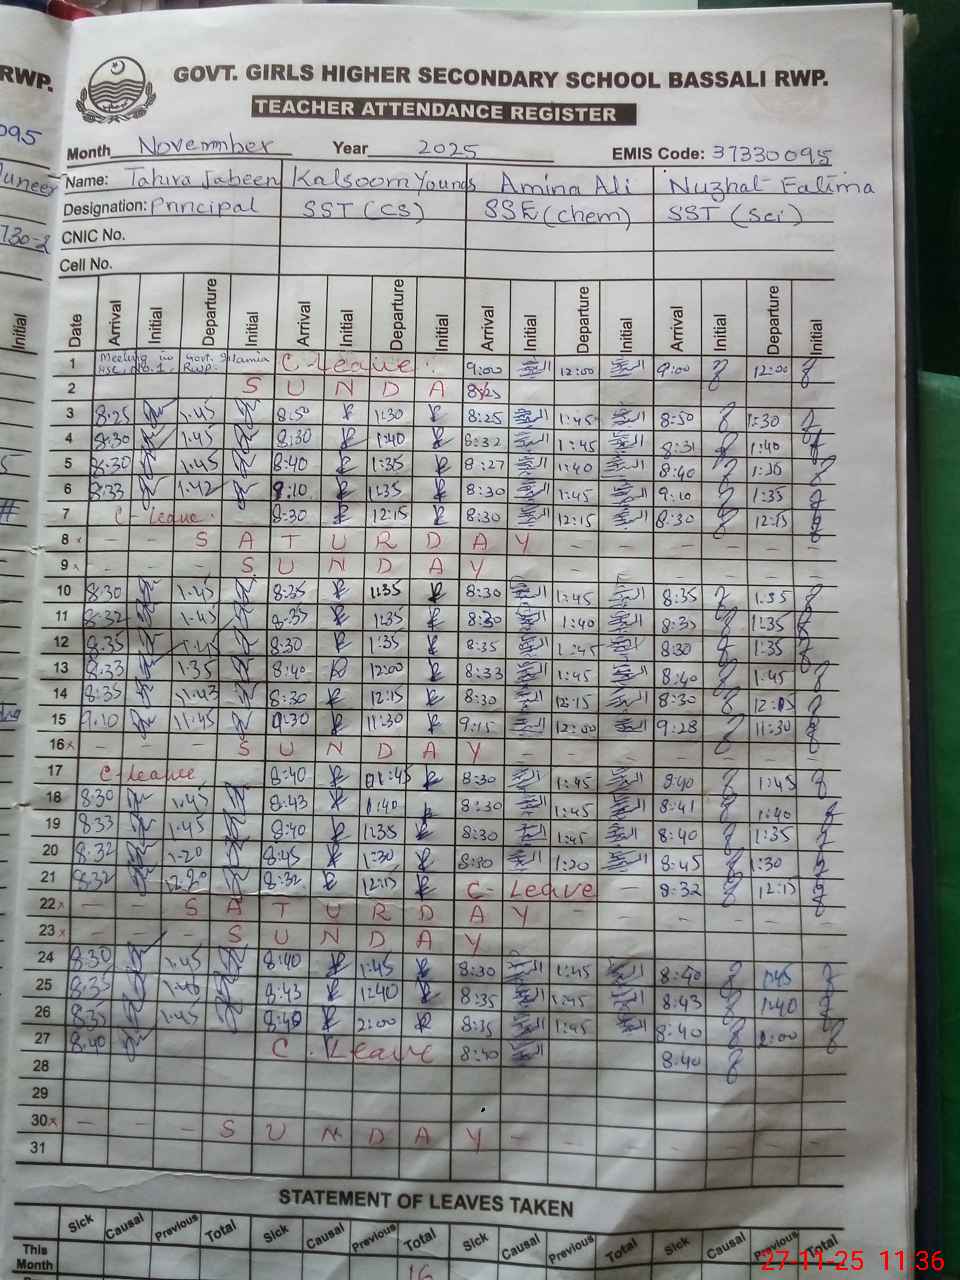 RWP. GOVT. GIRLS HIGHER SECONDARY SCHOOL BASSALI RWP.
TEACHER ATTENDANCE REGISTER
095 Month Novemmber Year 2025 EMIS Code: 37330095
Name: Tahira Jabeen Kalsoom Younas Amina Ali Nuzhat Fatima
Designation: Principal SST (CS) SSE (chem) SST (Sci)
CNIC No.
Cell No.
Initial Date Arrival Initial Departure Initial Arrival Initial Departure Initial Arrival Initial Departure Initial Arrival Initial Departure Initial
1 Meeting in Govt. Islamia HSC, No.1, RWP. C-Leave. 9:00 12:00 9:00 12:00
2 S U N D A
3 8:25 1:45 8:50 1:30 8:25 1:45 8:50 1:30
4 8:30 1:45 8:30 1:40 8:32 1:45 8:31 1:40
5 8:30 1:45 8:40 1:35 8:27 1:40 8:40 1:36
6 8:33 1:42 9:10 1:35 8:30 1:45 9:10 1:35
7 C-Leave. 8:30 12:15 8:30 12:15 8:30 12:15
8 x - - S A T U R D A Y - - - - - -
9 x S U N D A Y - - - -
10 8:30 1:45 8:35 1:35 8:30 1:45 8:35 1:35
11 8:32 1:45 8:35 1:35 8:30 1:40 8:35 1:35
12 8:35 1:45 8:30 1:35 8:35 1:45 8:30 1:35
13 8:33 1:35 8:40 12:00 8:33 1:45 8:40 1:45
14 8:35 11:43 8:30 12:15 8:30 12:15 8:30 12:15
15 9:10 11:45 9:30 11:30 9:15 12:00 9:28 11:30
16 x - - - S U N D A Y - - - - - -
17 C-Leave 8:40 1:45 8:30 1:45 8:40 1:45
18 8:30 1:45 8:43 1:40 8:30 1:45 8:41 1:40
19 8:33 1:45 8:40 1:35 8:30 1:45 8:40 1:35
20 8:32 1:20 8:45 1:30 8:30 1:20 8:45 1:30
21 8:32 12:20 8:32 12:15 C-Leave - 8:32 12:15
22 x - - S A T U R D A Y - - - - - -
23 x - - S U N D A Y
24 8:30 1:45 8:40 1:45 8:30 1:45 8:40 1:45
25 8:35 1:40 8:43 1:40 8:35 1:45 8:43 1:40
26 8:35 1:45 8:40 2:00 8:35 1:45 8:40 2:00
27 8:40 C. Leave 8:40 8:40
28
29
30 x - - - S U N D A Y - - - -
31
STATEMENT OF LEAVES TAKEN
Sick Causal Previous Total Sick Causal Previous Total Sick Causal Previous Total Sick Causal Previous Total
This Month 16
27-11-25 11 36